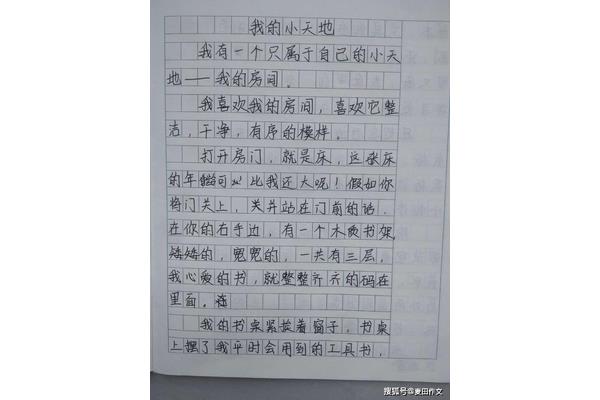 我的小天地
我有一个只属于自己的小天
地——我的房间。
我喜欢我的房间,喜欢它整
洁,干净,有序的模样。
打开房门,就是床,这张床
的年龄可以比我还大呢!假如你
将门关上,关并站在门前的话,
在你的右手边,有一个木质书架,
矮矮的,宽宽的,一共有三层,
我心爱的书,就整整齐齐的码在
里面。
我的书桌紧挨着窗子。书桌
上摆了我平时会用到的工具书,
搜狐号@麦田作文